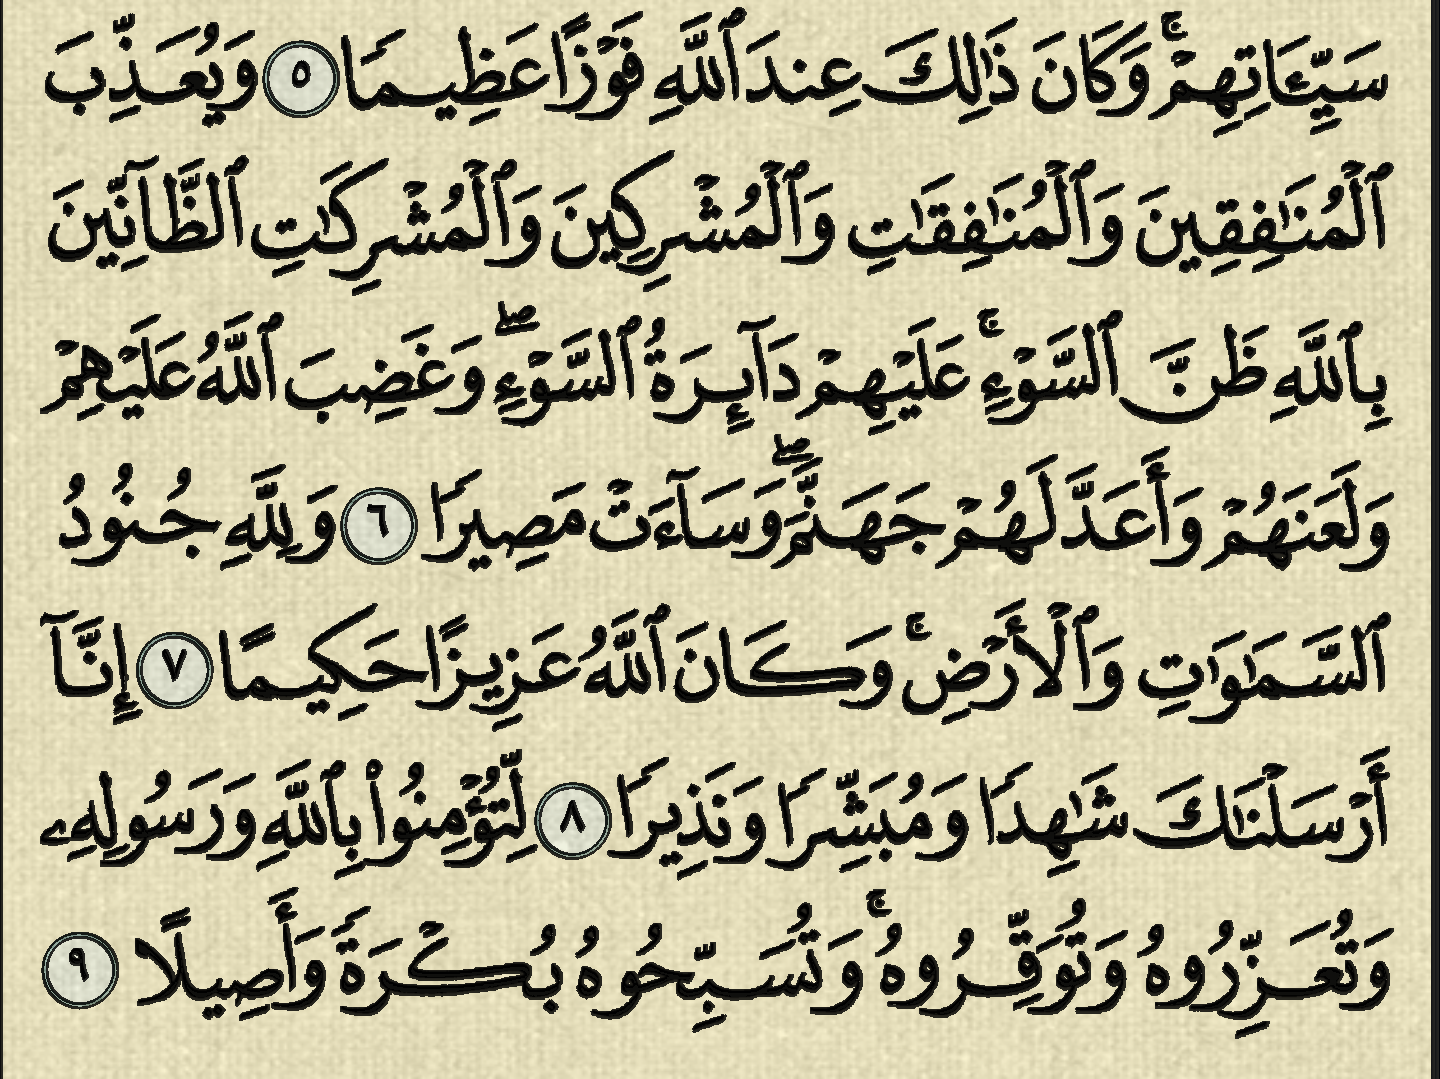 سَيِّـَٔاتِهِمْ ۚ وَكَانَ ذَٰلِكَ عِندَ ٱللَّهِ فَوْزًا عَظِيمًا ٥ وَيُعَذِّبَ
ٱلْمُنَـٰفِقِينَ وَٱلْمُنَـٰفِقَـٰتِ وَٱلْمُشْرِكِينَ وَٱلْمُشْرِكَـٰتِ ٱلظَّآنِّينَ
بِٱللَّهِ ظَنَّ ٱلسَّوْءِ ۚ عَلَيْهِمْ دَآئِرَةُ ٱلسَّوْءِ ۖ وَغَضِبَ ٱللَّهُ عَلَيْهِمْ
وَلَعَنَهُمْ وَأَعَدَّ لَهُمْ جَهَنَّمَ ۖ وَسَآءَتْ مَصِيرًا ٦ وَلِلَّهِ جُنُودُ
ٱلسَّمَـٰوَٰتِ وَٱلْأَرْضِ ۚ وَكَانَ ٱللَّهُ عَزِيزًا حَكِيمًا ٧ إِنَّآ
أَرْسَلْنَـٰكَ شَـٰهِدًا وَمُبَشِّرًا وَنَذِيرًا ٨ لِّتُؤْمِنُوا۟ بِٱللَّهِ وَرَسُولِهِۦ
وَتُعَزِّرُوهُ وَتُوَقِّرُوهُ ۚ وَتُسَبِّحُوهُ بُكْرَةً وَأَصِيلًا ٩